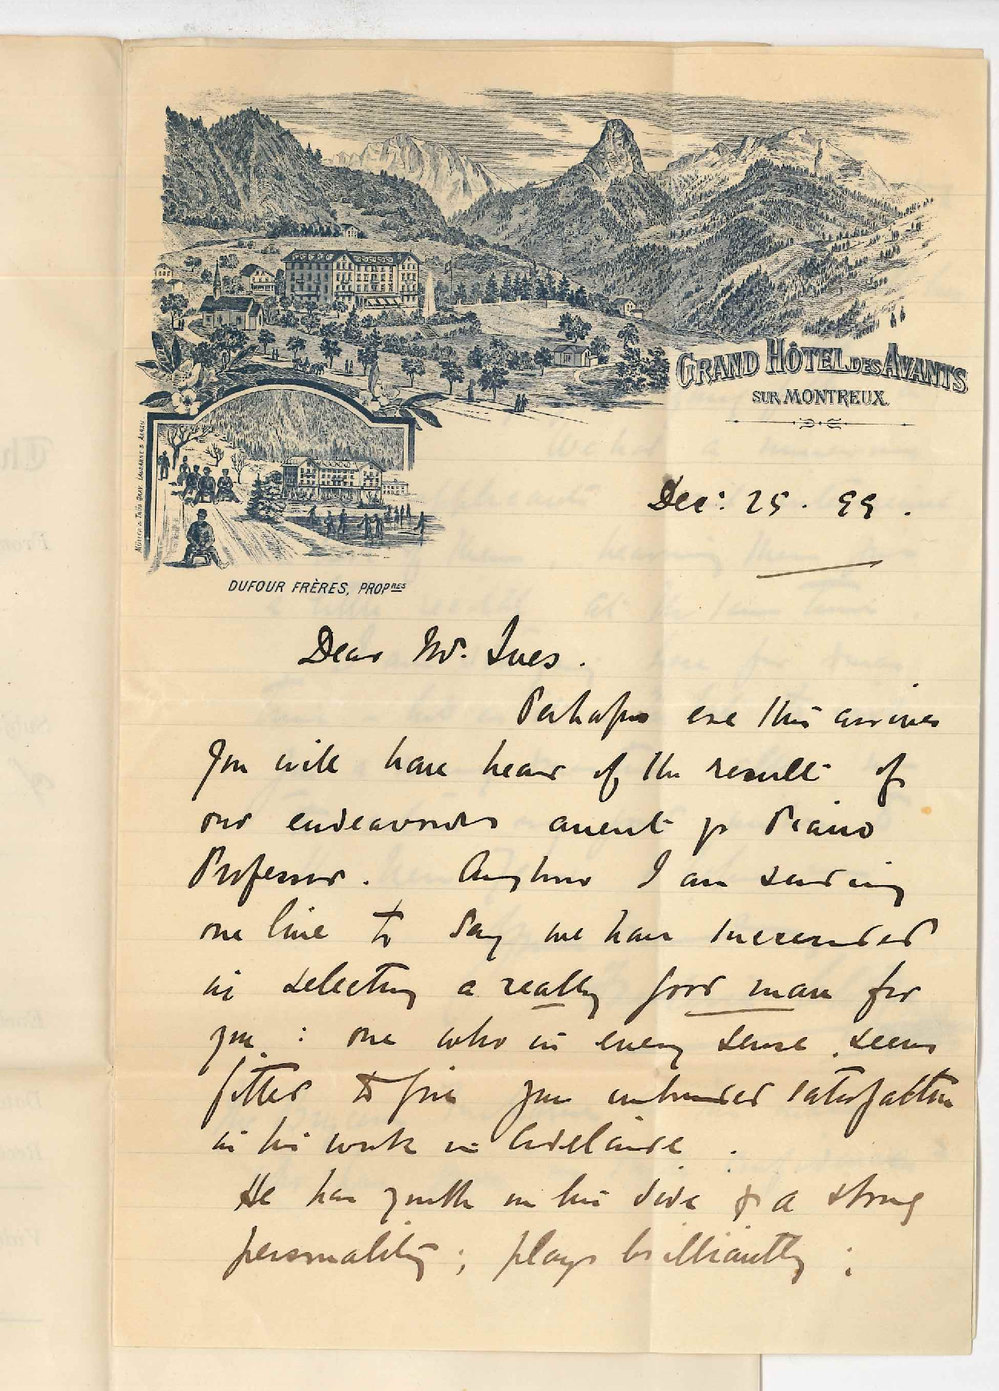 GRAND HÔTEL DES AVANTS
SUR MONTREUX
DUFOUR FRÈRES, PROPRES
Dec: 25. 99.
Dear Mr. Ives.
Perhaps ere this arrives
you will have heard of the result of
our endeavours anent yr Piano
Professor. Anyhow I am sending
one line to say we have succeeded
in selecting a really good man for
you: one who in every sense, seems
fitted to give you unbounded satisfaction
in his work in Adelaide.
He has youth on his side & a strong
personality; plays brilliantly;